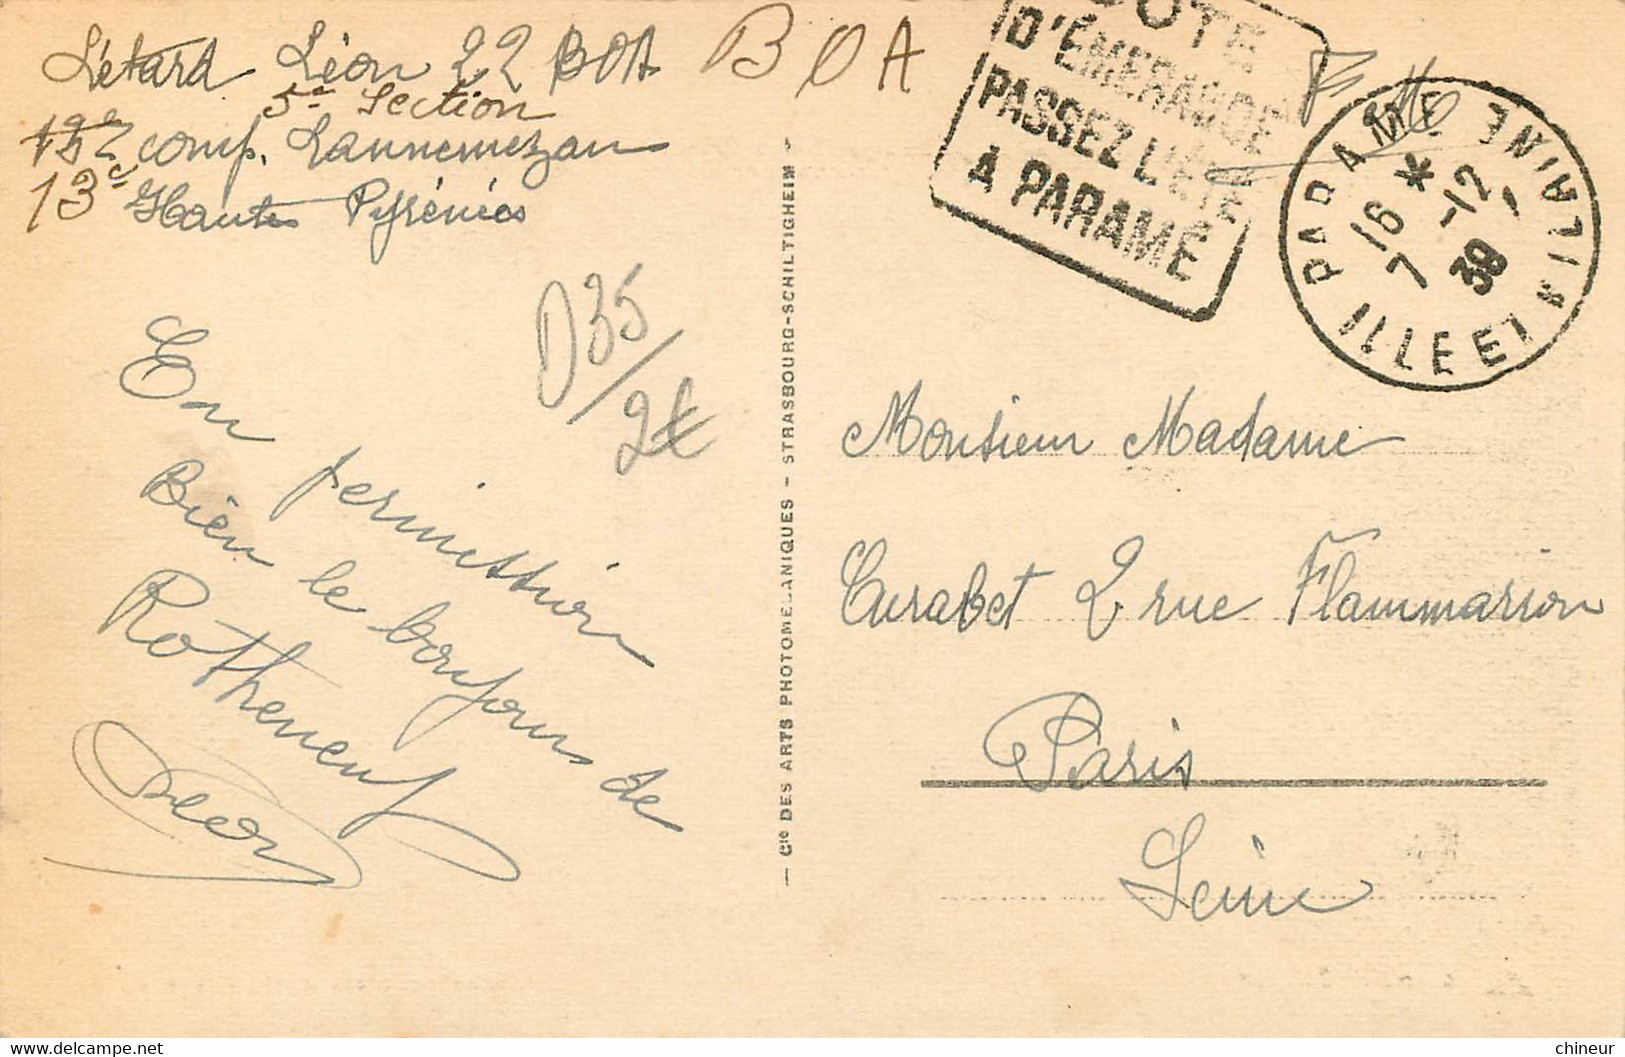 Létard Léon 22 BOA B O A
5e Section
132 comp. Lannemezan
13e Hautes Pyrénées
D35/2€
En permission
Bien le bonjour de
Rotheneuf
Léon
— Cie DES ARTS PHOTOMECANIQUES - STRASBOURG-SCHILTIGHEIM -
COTE
D'ÉMERAUDE
PASSEZ L'ÉTÉ
A PARAMÉ
F M
PARAMÉ ILLE ET VILAINE
16 * 12
7 - 39
Monsieur Madame
Curabet 2 rue Flammarion
Paris
Seine
chineur @ delcampe.net